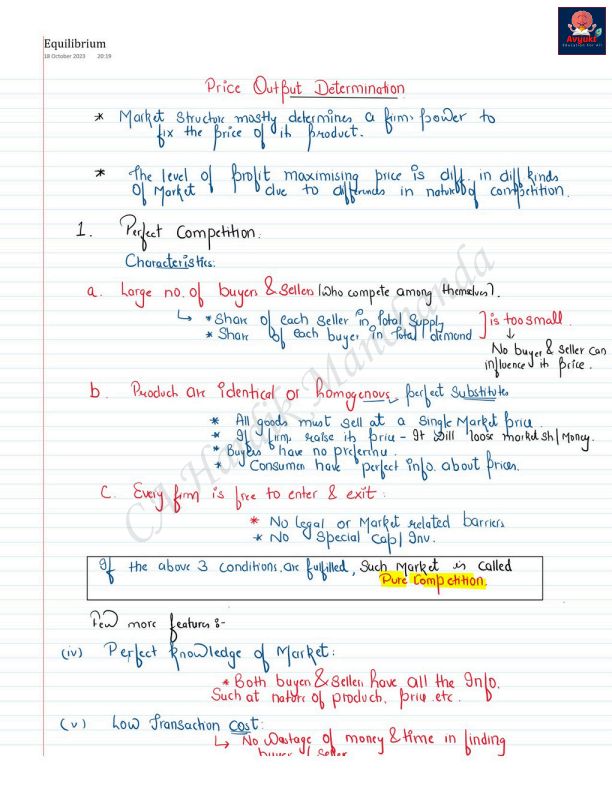 Avyukt
Education For All
Equilibrium
18 October 2023 20:19
Price Output Determination
* Market Structure mostly determines a firms power to
fix the price of its product.
* The level of profit maximising price is diff. in diff kinds
of Market due to differends in nature of competition.
1. Perfect Competition.
Characteristics:
a. Large no. of buyers & Sellers (Who compete among themselves).
↳ * Share of each seller in Total Supply
* Share of each buyer in Total demand ] is too small.
↓
No buyer & Seller can
influence its price.
b. Product are identical or homogenous, perfect Substitutes
* All goods must sell at a Single Market price
* If firm raise its price - It will loose market sh/Money.
* Buyers have no preference.
* Consumer have perfect info. about prices.
C. Every firm is free to enter & exit:
* No legal or Market related barriers
* No Special Cap/Inv.
If the above 3 conditions are fulfilled, Such Market is called
Pure Competition.
Few more features:-
(iv) Perfect knowledge of Market:
* Both buyer & Seller have all the Info.
Such at nature of product, price etc.
(v) Low Transaction cost:
↳ No Wastage of money & time in finding
buyer / Seller
CA Hardik Manchanda